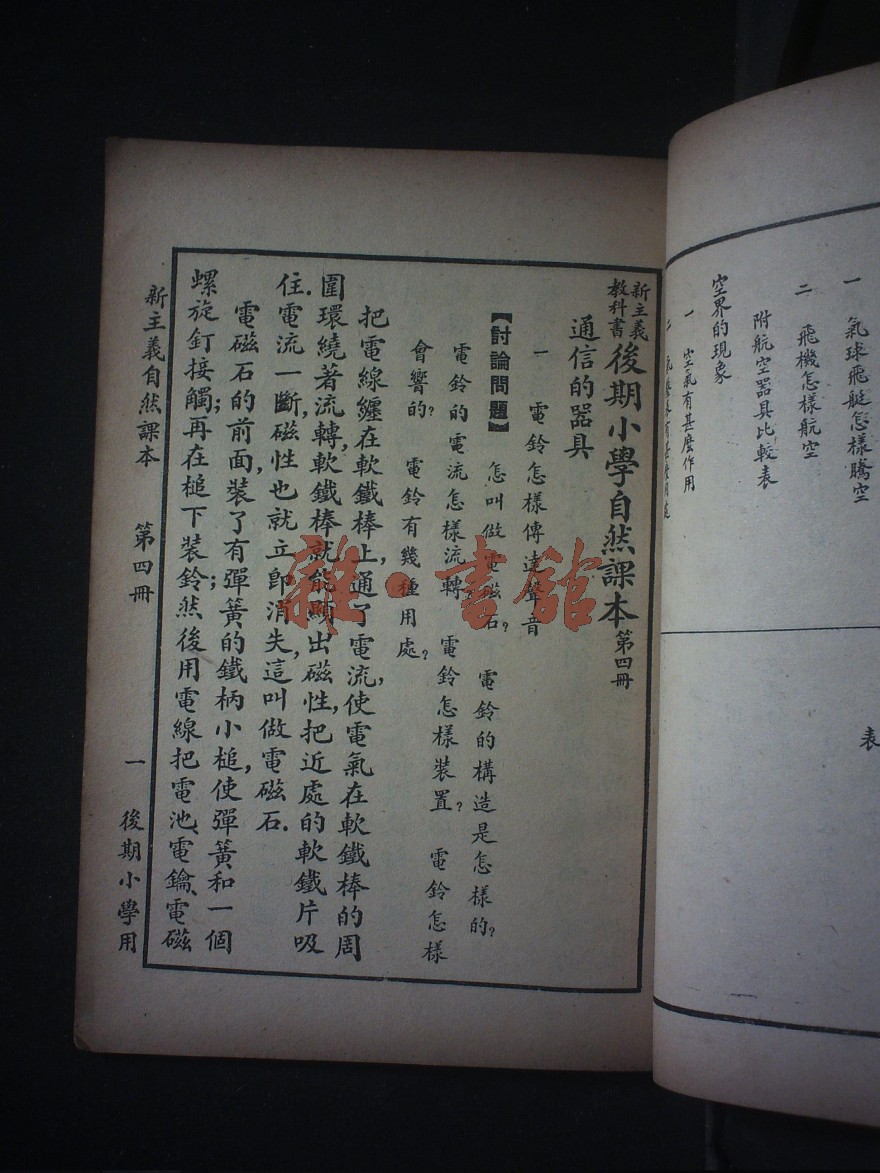 一 氣球飛艇怎樣騰空
二 飛機怎樣航空
附航空器具比較表
空界的現象
一 空氣有甚麼作用
表
新主義教科書 後期小學自然課本 第四冊
通信的器具
一 電鈴怎樣傳達聲音
【討論問題】 怎叫做電磁石? 電鈴的構造是怎樣的?
電鈴的電流怎樣流轉? 電鈴怎樣裝置? 電鈴怎樣
會響的? 電鈴有幾種用處?
把電線纏在軟鐵棒上,通了電流,使電氣在軟鐵棒的周
圍環繞著流轉,軟鐵棒就能顯出磁性,把近處的軟鐵片吸
住.電流一斷,磁性也就立卽消失,這叫做電磁石.
電磁石的前面,裝了有彈簧的鐵柄小槌,使彈簧和一個
螺旋釘接觸;再在槌下裝鈴;然後用電線把電池、電鑰、電磁
新主義自然課本 第四冊 一 後期小學用
雜·書館